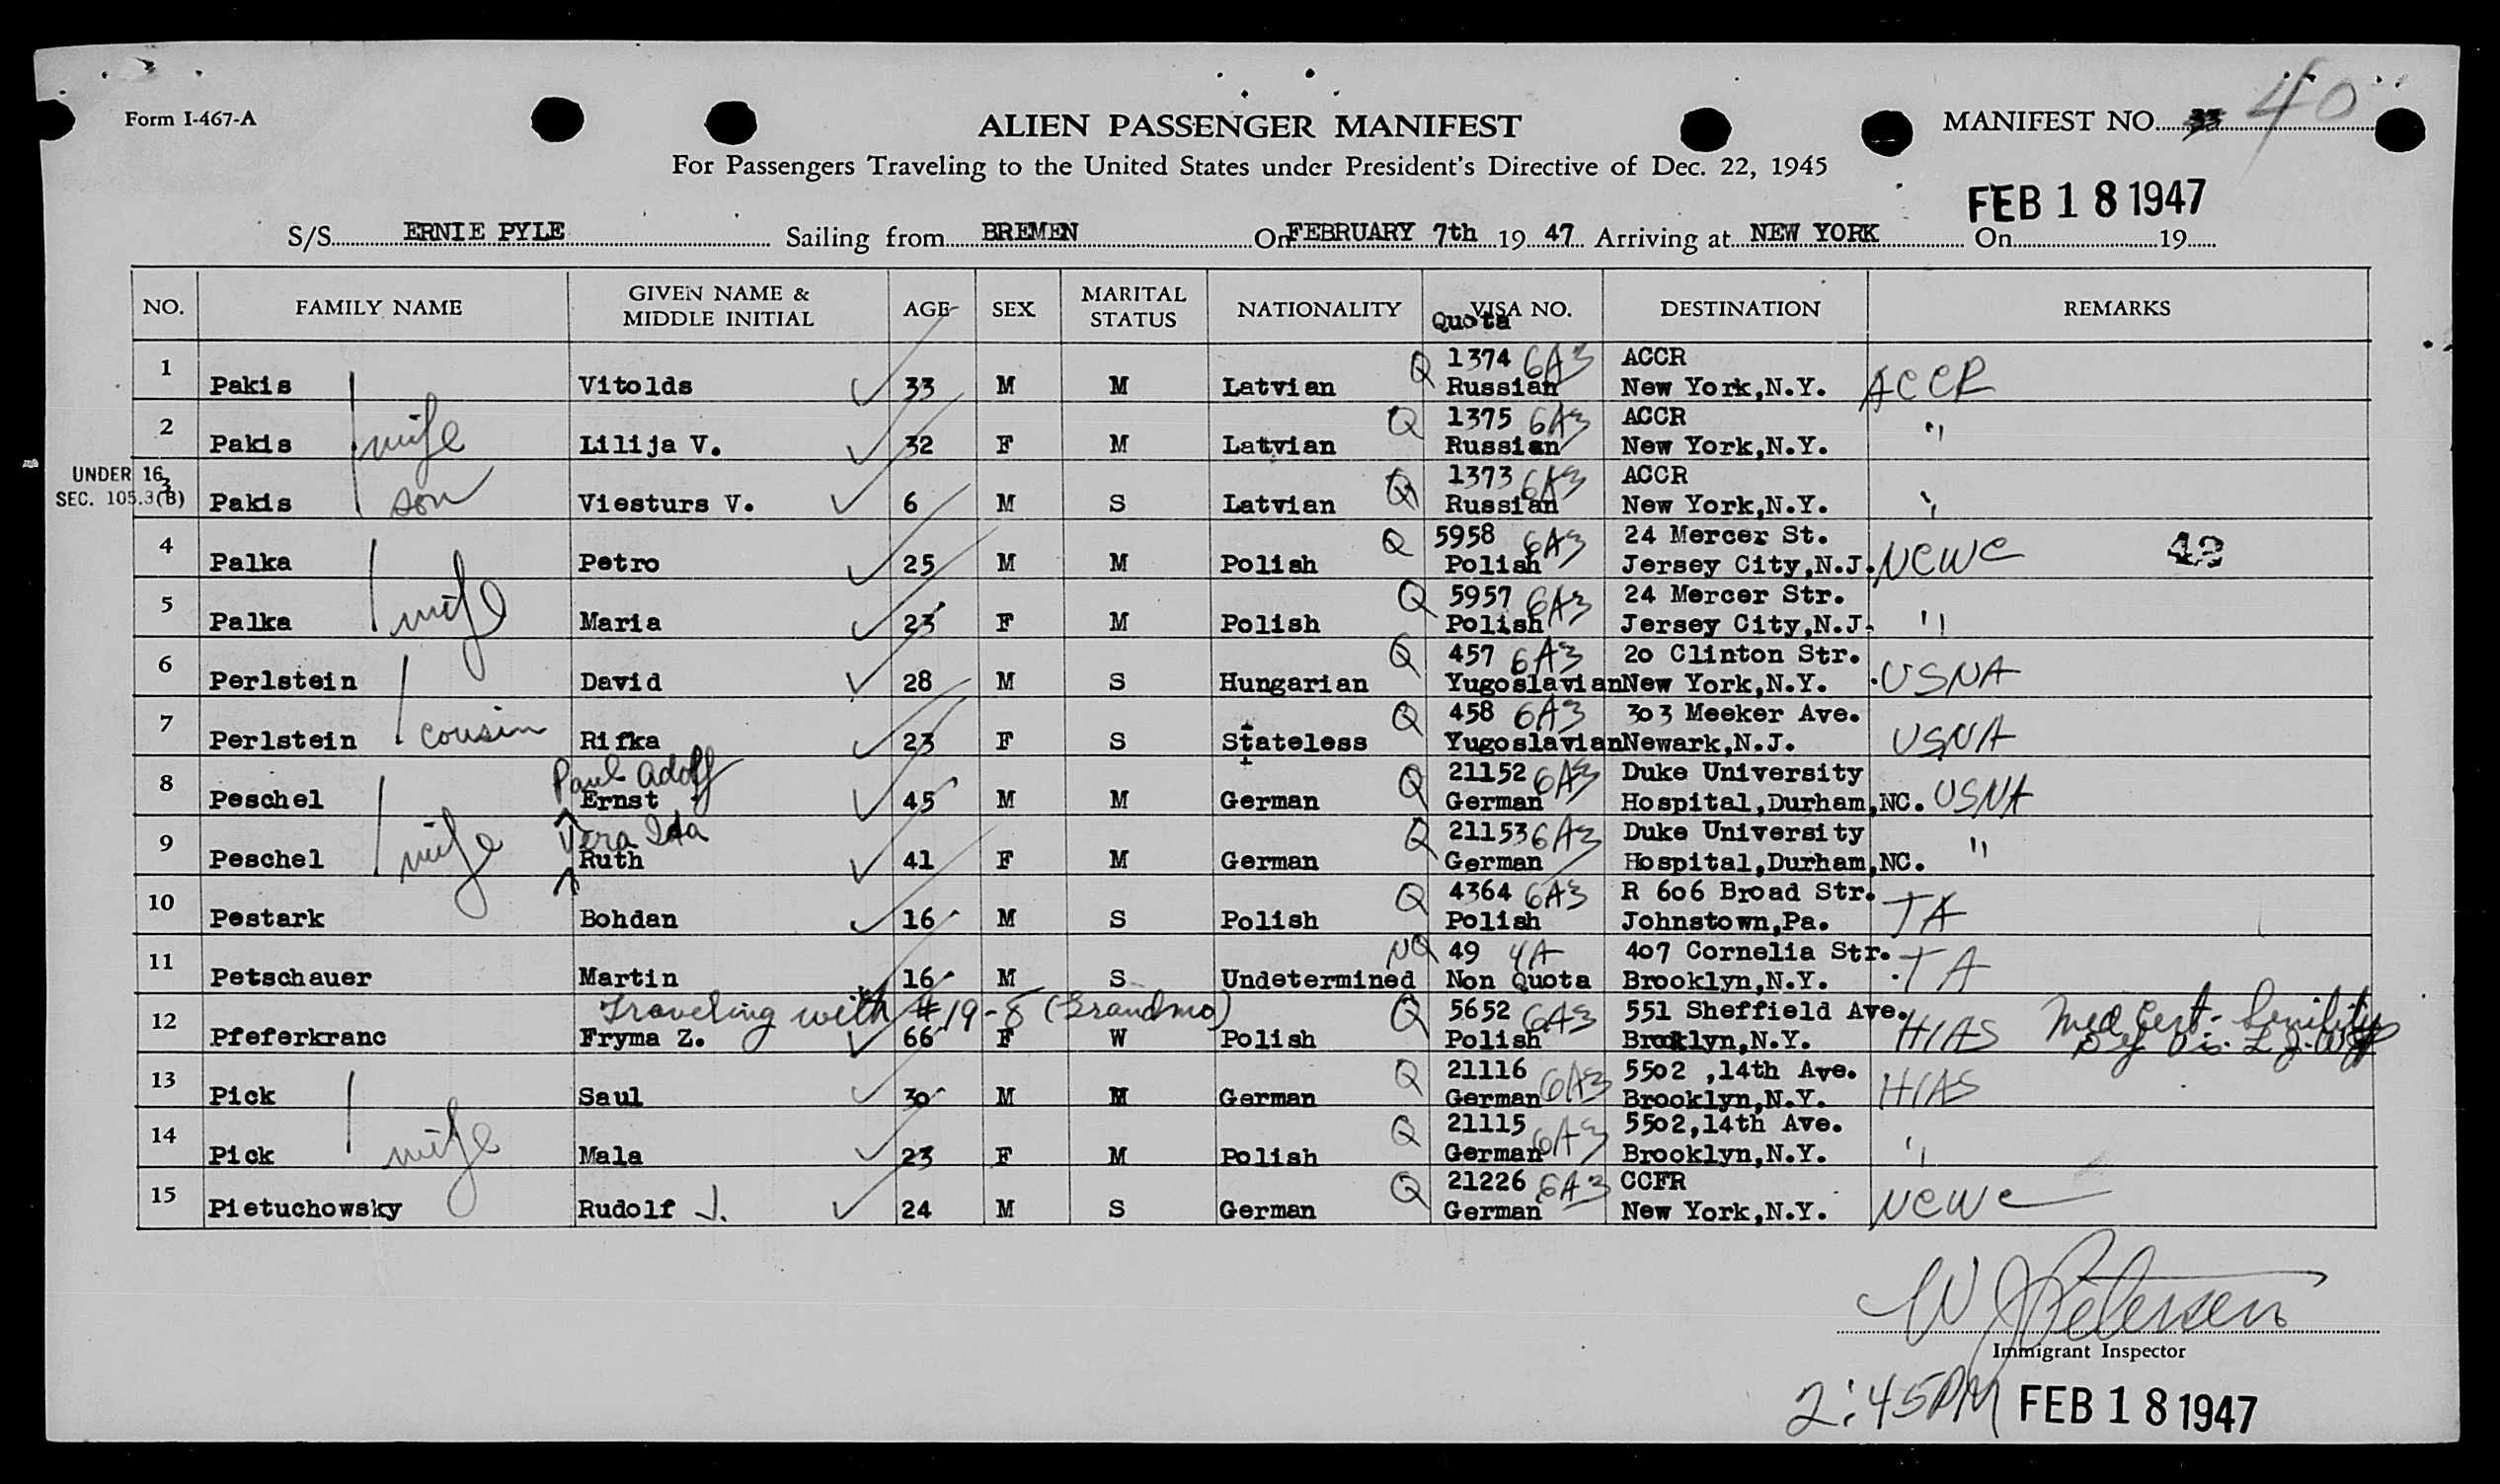 40
Form I-467-A
ALIEN PASSENGER MANIFEST
MANIFEST NO.
For Passengers Traveling to the United States under President's Directive of Dec. 22, 1945
FEB 18 1947
S/S ERNIE PYLE Sailing from BREMEN On FEBRUARY 7th 19 47 Arriving at NEW YORK On 19
NO. FAMILY NAME GIVEN NAME & MIDDLE INITIAL AGE SEX MARITAL STATUS NATIONALITY VISA NO. Quota DESTINATION REMARKS
1 Pakis Vitolds 33 M M Latvian Q 1374 6A3 Russian ACCR New York,N.Y. ACCR
2 Pakis wife Lilija V. 32 F M Latvian Q 1375 6A3 Russian ACCR New York,N.Y. "
UNDER 16 SEC. 105.3(B)
3 Pakis son Viesturs V. 6 M S Latvian Q 1373 6A3 Russian ACCR New York,N.Y. "
4 Palka Petro 25 M M Polish Q 5958 6A3 Polish 24 Mercer St. Jersey City,N.J. NCWC
5 Palka wife Maria 23 F M Polish Q 5957 6A3 Polish 24 Mercer Str. Jersey City,N.J. "
6 Perlstein David 28 M S Hungarian Q 457 6A3 Yugoslavian 20 Clinton Str. New York,N.Y. USNA
7 Perlstein cousin Rifka 23 F S Stateless Q 458 6A3 Yugoslavian 303 Meeker Ave. Newark,N.J. USNA
8 Peschel Paul Adolf Ernst 45 M M German Q 21152 6A3 German Duke University Hospital,Durham,NC. USNA
9 Peschel wife Vera Ida Ruth 41 F M German Q 21153 6A3 German Duke University Hospital,Durham,NC. "
10 Pestark Bohdan 16 M S Polish Q 4364 6A3 Polish R 606 Broad Str. Johnstown,Pa. TA
11 Petschauer Martin 16 M S Undetermined NQ 49 4A Non Quota 407 Cornelia Str. Brooklyn,N.Y. TA
Traveling with #19-8 (Grandma)
12 Pfeferkranc Fryma Z. 66 F W Polish Q 5652 6A3 Polish 551 Sheffield Ave. Brooklyn,N.Y. HIAS Med Cert. Senility
13 Pick Saul 30 M M German Q 21116 6A3 German 5502 ,14th Ave. Brooklyn,N.Y. HIAS
14 Pick wife Mala 23 F M Polish Q 21115 6A3 German 5502,14th Ave. Brooklyn,N.Y. "
15 Pietuchowsky Rudolf J. 24 M S German Q 21226 6A3 German CCFR New York,N.Y. NCWC
W J Petersen
Immigrant Inspector
2:45PM FEB 18 1947